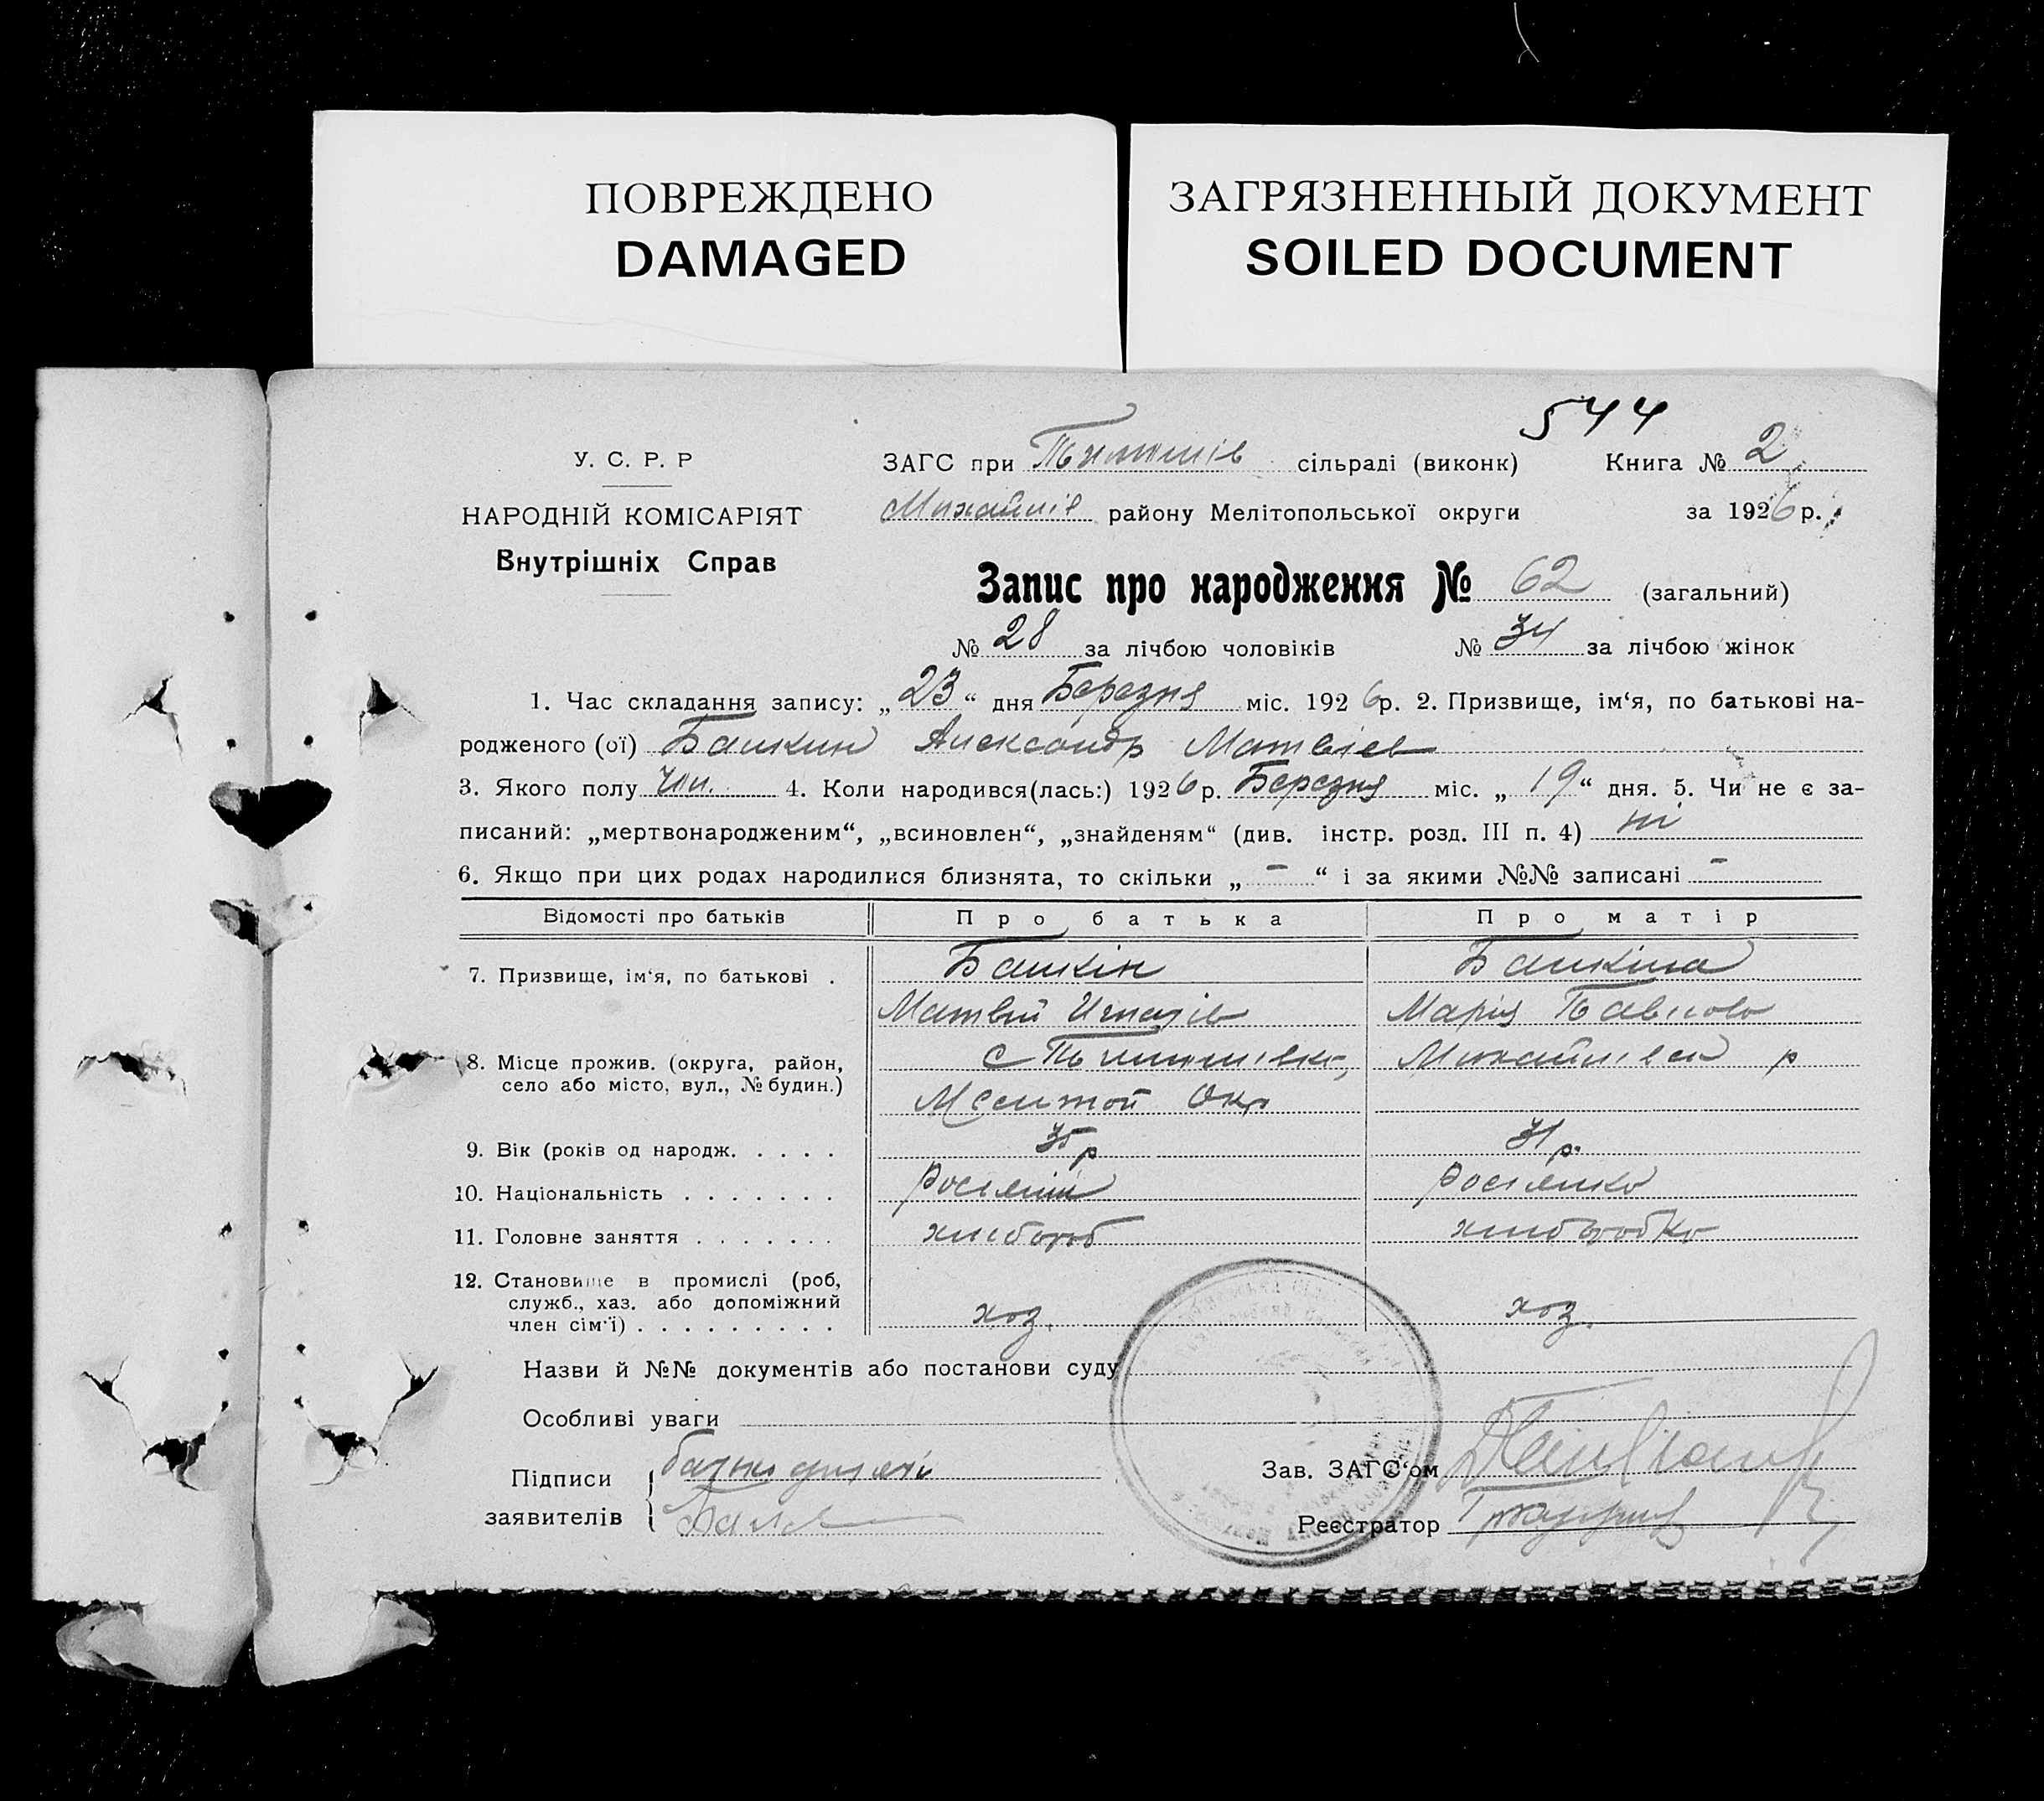 ПОВРЕЖДЕНО
DAMAGED
ЗАГРЯЗНЕННЫЙ ДОКУМЕНТ
SOILED DOCUMENT
544
У. С. Р. Р
НАРОДНІЙ КОМІСАРІЯТ
Внутрішніх Справ
ЗАГС при Тимошів сільраді (виконк) Книга № 2
Михайлів району Мелітопольської округи за 1926 р.
Запис про народження № 62 (загальний)
№ 28 за лічбою чоловіків № 34 за лічбою жінок
1. Час складання запису: „23“ дня Березня міс. 1926 р. 2. Призвище, ім‘я, по батькові на-
родженого (ої) Башкин Александр Матвіев
3. Якого полу чол. 4. Коли народився(лась:) 1926 р. Березня міс. „19“ дня. 5. Чи не є за-
писаний: „мертвонародженим“, „всиновлен“, „знайденям“ (див. інстр. розд. III п. 4) ні
6. Якщо при цих родах народилися близнята, то скільки „ – “ і за якими №№ записані –
Відомості про батьків Про батька Про матір
7. Призвище, ім‘я, по батькові . Башкін Башкіна
Матвій Игнатів Марія Павлова
8. Місце прожив. (округа, район, с Тимошівка, Михайлівськ р
село або місто, вул., № будин.) Мелітоп Окр
9. Вік (років од народж. . . . . 35 р 31 р.
10. Національність . . . . . . . Росіянин Росіянка
11. Головне заняття . . . . . . . хлібороб хліборобка
12. Становище в промислі (роб,
служб., хаз. або допоміжний
член сім‘ї) . . . . . . . . . хоз. хоз.
Назви й №№ документів або постанови суду
Особливі уваги
Підписи батько дитяти
заявителів
Зав. ЗАГС‘ом
Реєстратор